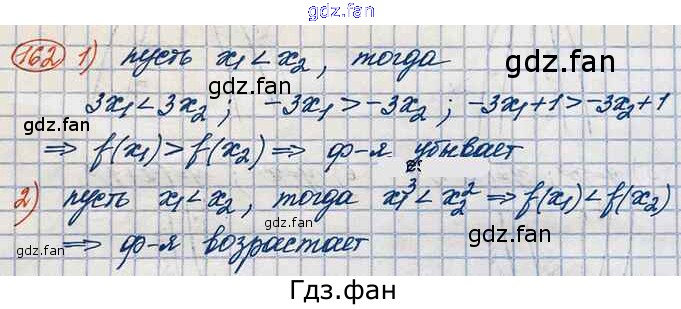 gdz.fan
162 1) пусть x₁ < x₂, тогда
gdz.fan
3x₁ < 3x₂; -3x₁ > -3x₂; -3x₁+1 > -3x₂+1
gdz.fan
⇒ f(x₁) > f(x₂) ⇒ ф-я убывает
gdz.fan
2) пусть x₁ < x₂, тогда x₁³ < x₂² ⇒ f(x₁) < f(x₂)
gdz.fan
gdz.fan
⇒ ф-я возрастает
gdz.fan
Гдз.фан